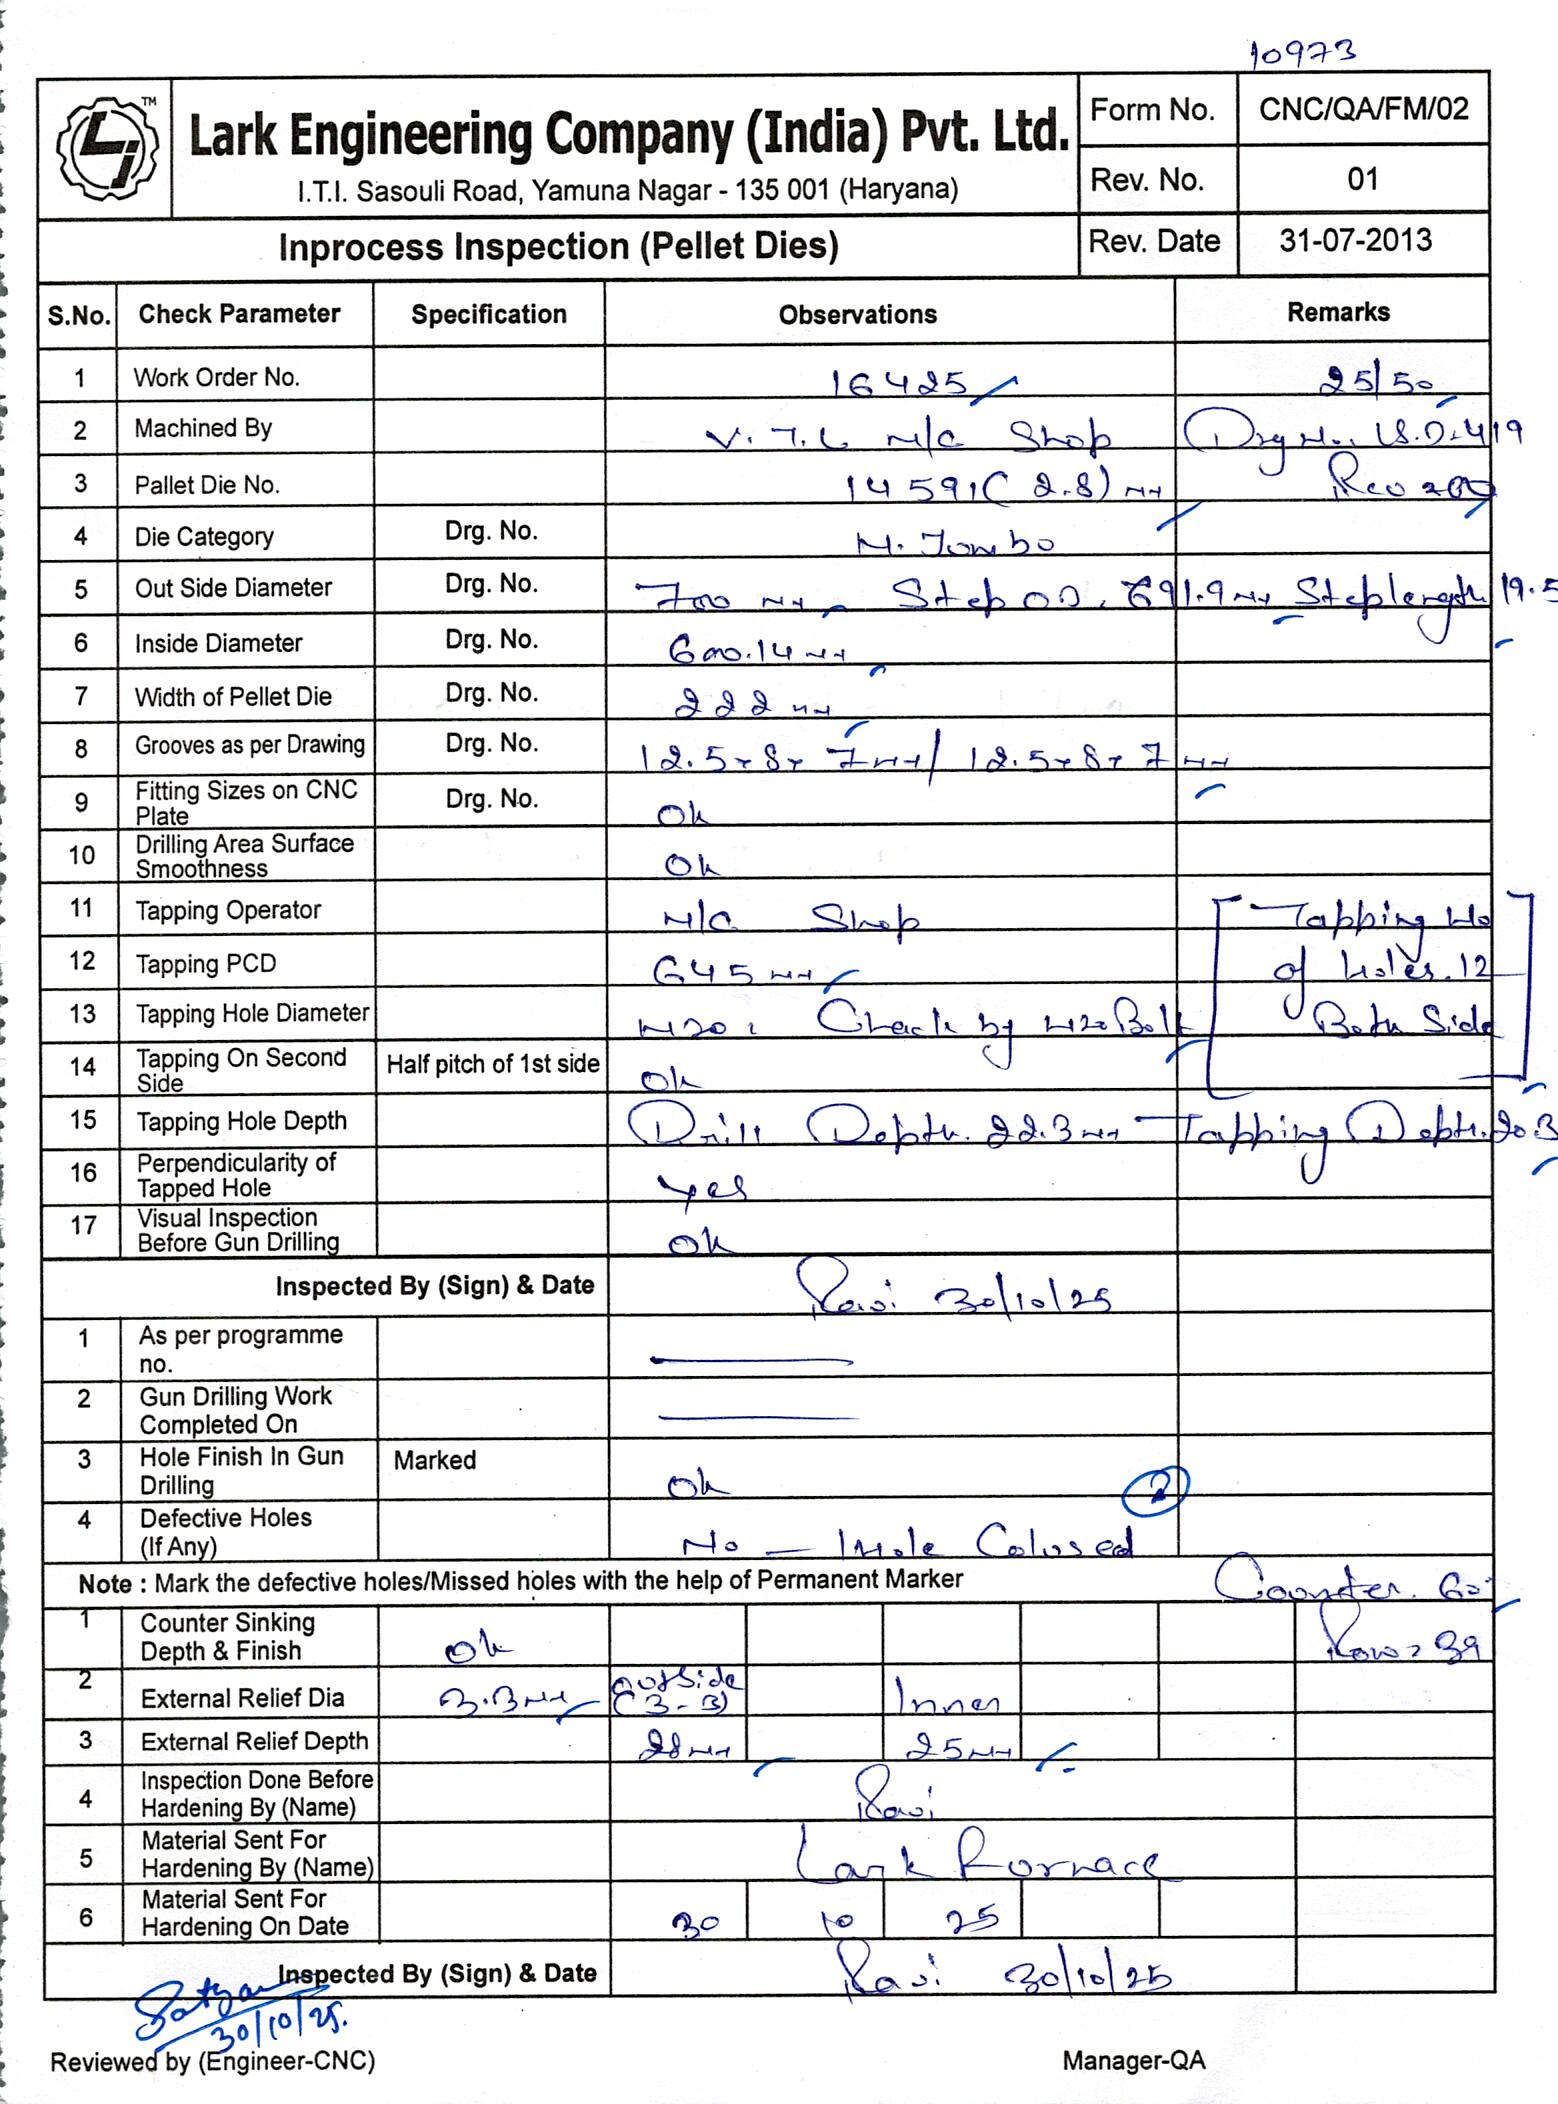 10973
TM
Lark Engineering Company (India) Pvt. Ltd.
I.T.I. Sasouli Road, Yamuna Nagar - 135 001 (Haryana)
Form No. CNC/QA/FM/02
Rev. No. 01
Inprocess Inspection (Pellet Dies) Rev. Date 31-07-2013
S.No. Check Parameter Specification Observations Remarks
1 Work Order No. 16425 25/50
2 Machined By V.T.L M/C Shop Drg No. LS.D.419
3 Pallet Die No. 14591 (2.8) mm Rev 200
4 Die Category Drg. No. M. Jumbo
5 Out Side Diameter Drg. No. 700 mm Step OD. 691.9mm Step length 19.5
6 Inside Diameter Drg. No. 600.14mm
7 Width of Pellet Die Drg. No. 222 mm
8 Grooves as per Drawing Drg. No. 12.5x8x7mm/ 12.5x8x7mm
9 Fitting Sizes on CNC Plate Drg. No. Ok
10 Drilling Area Surface Smoothness Ok
11 Tapping Operator M/C Shop Tapping No
12 Tapping PCD 645 mm of holes. 12
13 Tapping Hole Diameter M20, Check by M20 Bolt Both Side
14 Tapping On Second Side Half pitch of 1st side Ok
15 Tapping Hole Depth Drill Depth. 22.3mm Tapping Depth. 20.3
16 Perpendicularity of Tapped Hole Yes
17 Visual Inspection Before Gun Drilling Ok
Inspected By (Sign) & Date Ravi 30/10/25
1 As per programme no.
2 Gun Drilling Work Completed On
3 Hole Finish In Gun Drilling Marked Ok
4 Defective Holes (If Any) No — 1 Hole Colused
Note : Mark the defective holes/Missed holes with the help of Permanent Marker Counter. 60°
1 Counter Sinking Depth & Finish Ok Row = 39
2 External Relief Dia 3.3mm outside (3-3) Inner
3 External Relief Depth 28mm 25mm
4 Inspection Done Before Hardening By (Name) Ravi
5 Material Sent For Hardening By (Name) Lark Furnace
6 Material Sent For Hardening On Date 30 10 25
Inspected By (Sign) & Date Ravi 30/10/25
30/10/25.
Reviewed by (Engineer-CNC) Manager-QA